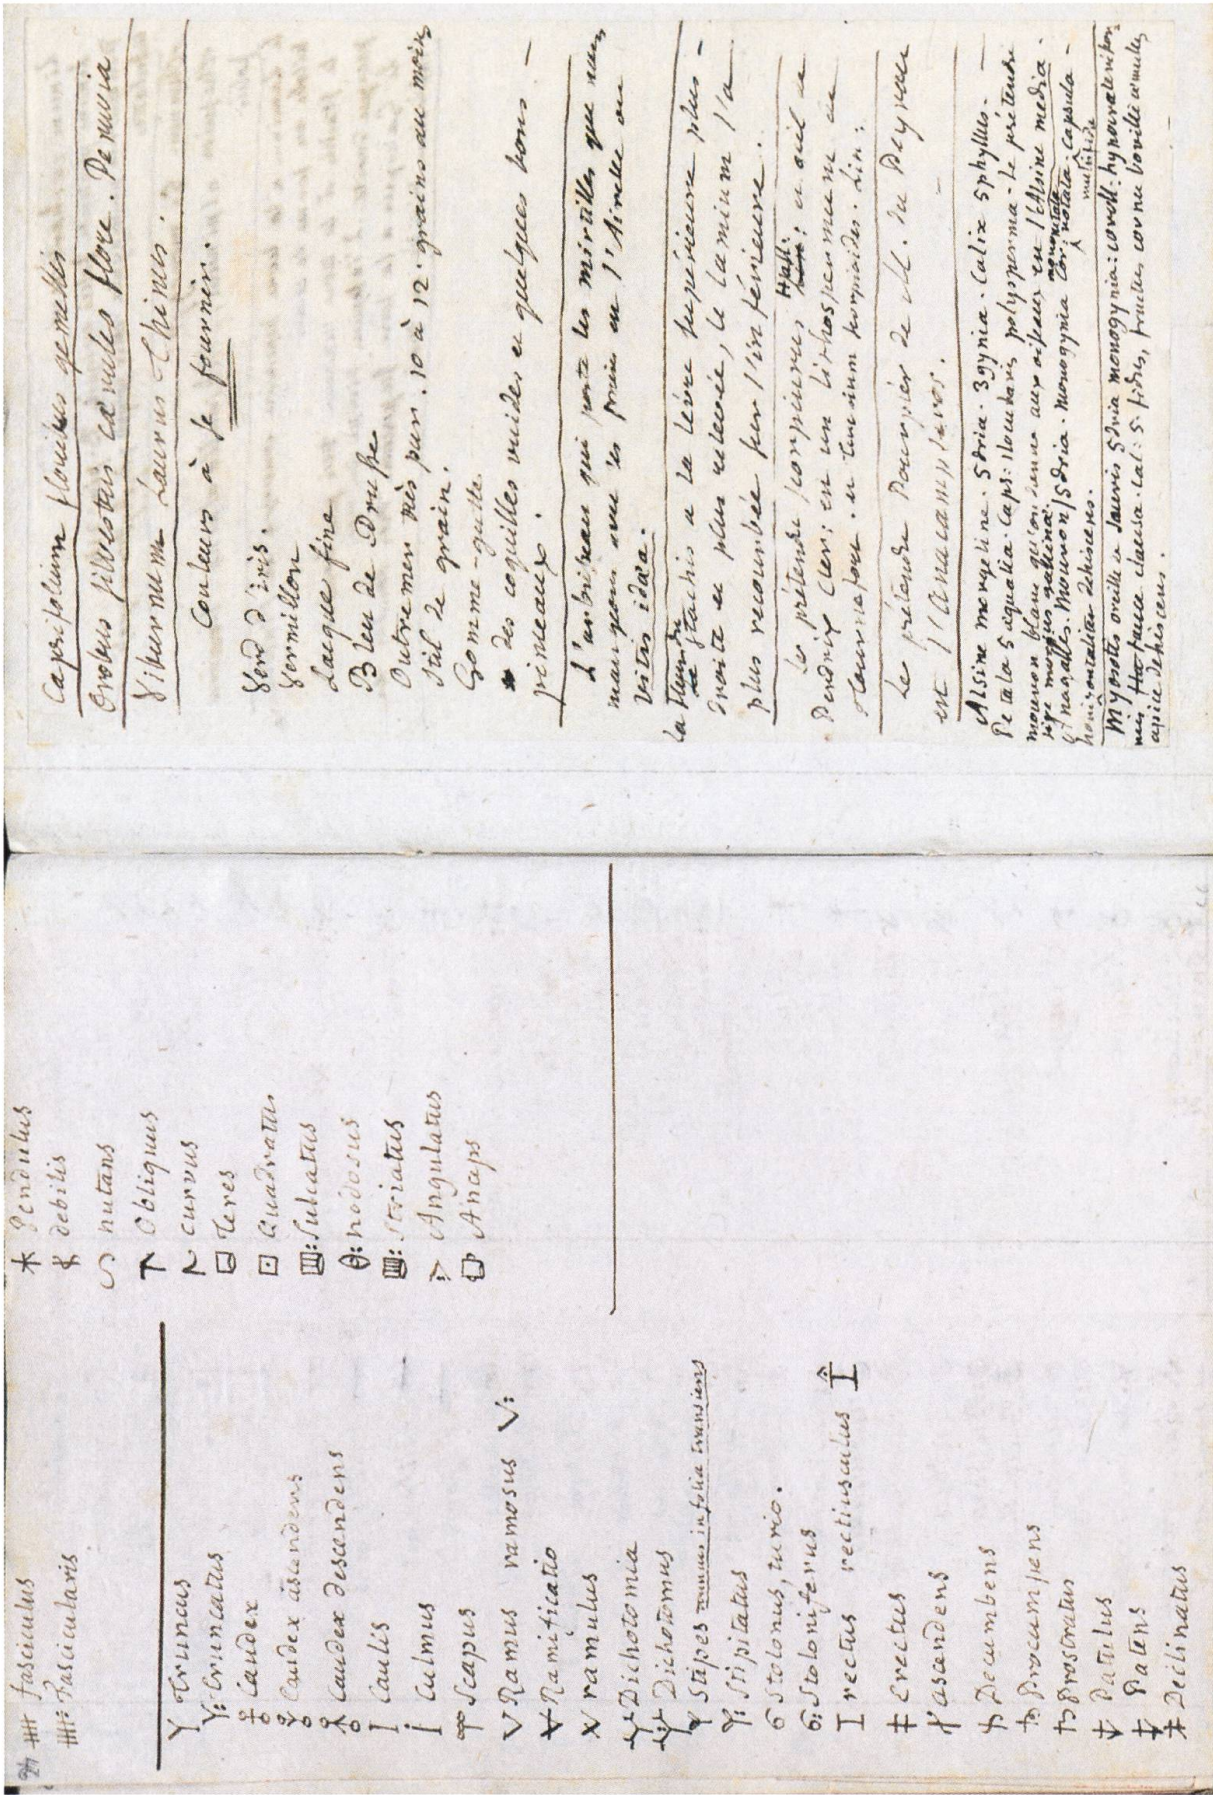 24
fasciculus
Fascicularis
Truncus
Truncatus
Caudex
Caudex ascendens
Caudex descendens
Caulis
Culmus
Scapus
Ramus ramosus
Ramificatio
ramulus
Dichotomia
Dichotomus
Stipes ramus in folia transiens
Stipitatus
Stolonus, turio.
Stoloniferus
rectus rectiusculus
Erectus
ascendens
Decumbens
Procumbens
Prostratus
Patulus
Patens
Declinatus
Pendulus
debilis
nutans
Obliquus
curvus
Teres
Quadratus
Sulcatus
nodosus
Striatus
Angulatus
Anceps
Caprifolium floribus gemellis
Orobus silvestris cæruleo flore. Peruvia
Viburnum Laurus Thinus.
Couleurs à se fournir.
Verd d'iris.
Vermillon
Laque fine
Bleu de Prusse
Outremer très pur. 10 à 12. grains au moins
Stil de grain.
Gomme-gutte.
des coquilles vuides et quelques bons
pinceaux.
L'arbrisseau qui porte les mirtilles que nous
mangeons avec les
Vitis idæa.
La fleur du stachis a la lévre supérieure plus
droite et plus relevée, le lamium l'a
plus recourbée sur l'inférieure.
Le prétendu
Tournefort.
Le prétendu Pourpier de M. du Peyrou
est
Alsine morgeline. 5dria. 3gynia. Calix 5phyllus.
Petala 5 æqualia. Caps: 1locularis polysperma. Le prétendu
mouron blanc qu'on donne aux oiseaux est l'Alsine media.
Mouron 5dria. monogynia Cor: rotata. Capsula
horisontaliter dehiscens.
Myosotis oreille de souris 5dria monogynia: coroll. hypocrateriformis
fauce clausa. Cal: 5. fidus,
apice dehiscens.